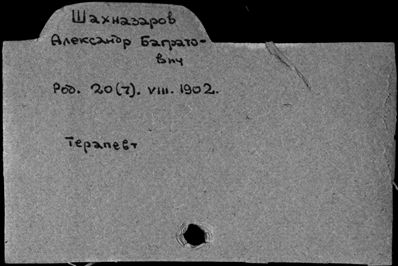 Шахназаров
Александр Багратo-
вич
Род. 20(7). VIII. 1902.
Терапевт